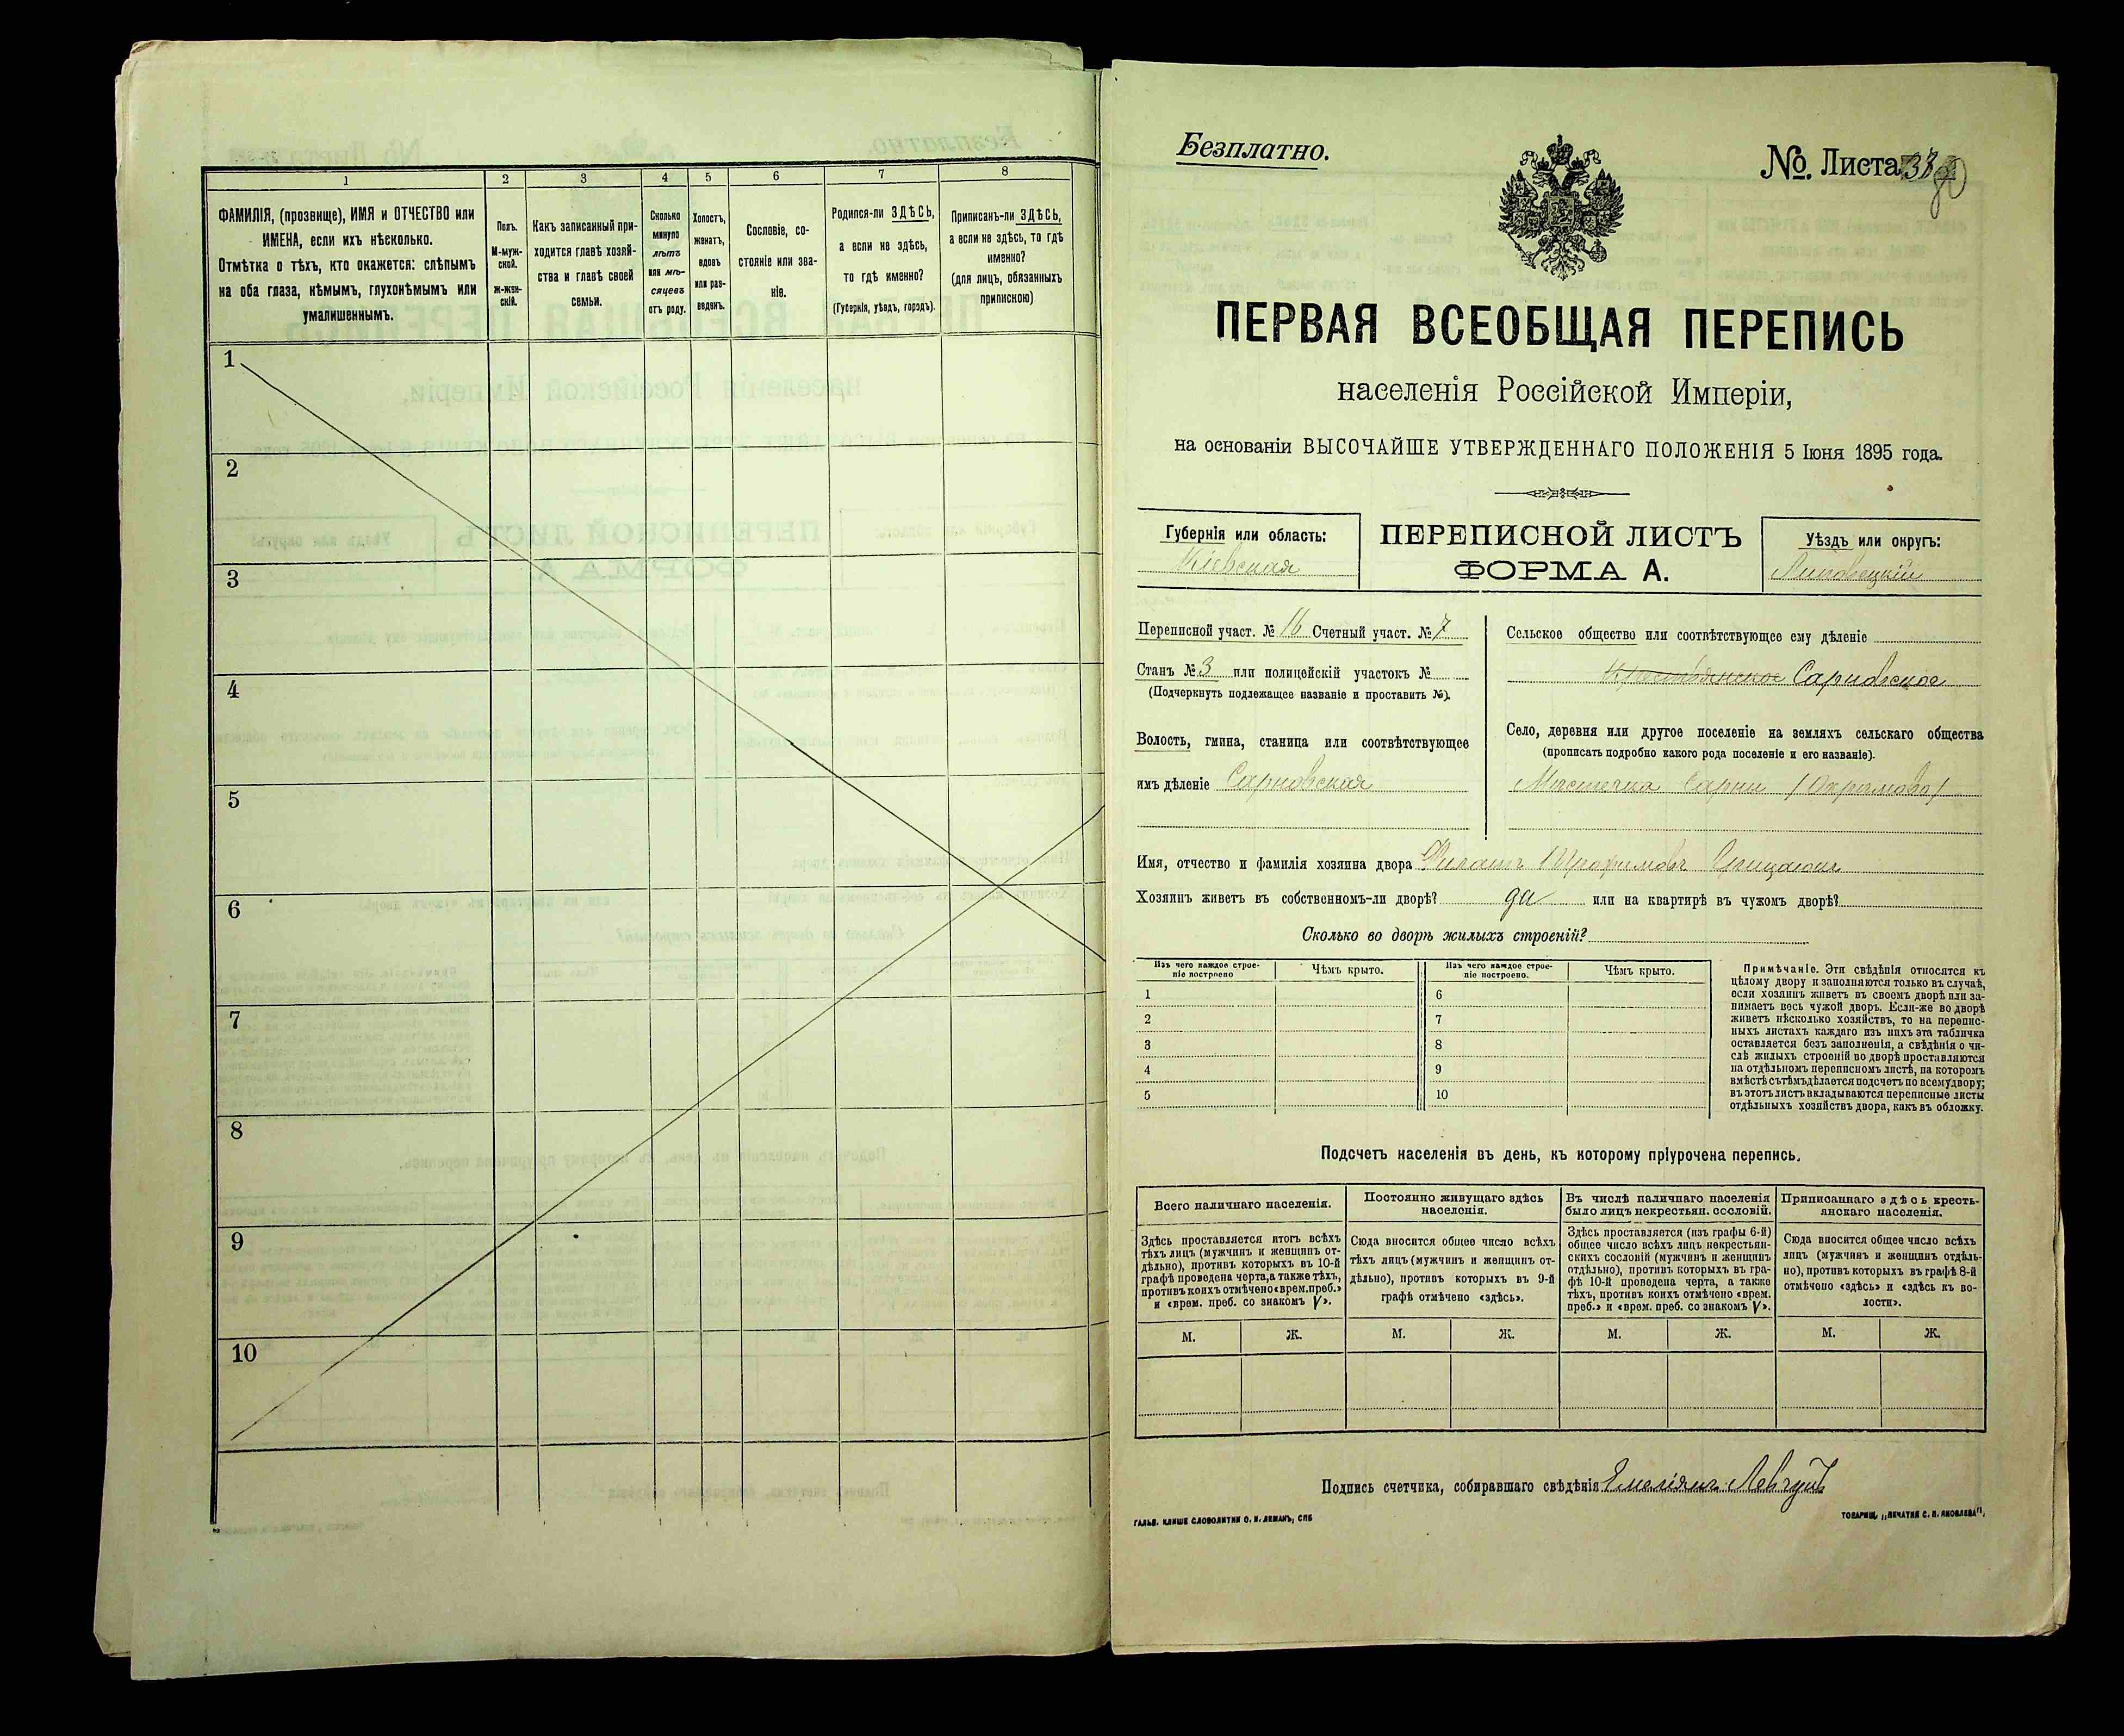 1
2
3
4
5
6
7
8
ФАМИЛІЯ, (прозвище), ИМЯ и ОТЧЕСТВО или
ИМЕНА, если ихъ нѣсколько.
Отмѣтка о тѣхъ, кто окажется: слѣпымъ
на оба глаза, нѣмымъ, глухонѣмымъ или
умалишеннымъ.
Полъ.
М-муж-
ской.
Ж-жен-
скій.
Какъ записанный при-
ходится главѣ хозяй-
ства и главѣ своей
семьи.
Сколько
минуло
лѣтъ
или мѣ-
сяцевъ
отъ роду.
Холостъ,
женатъ,
вдовъ
или раз-
веденъ.
Сословіе, со-
стояніе или зва-
ніе.
Родился-ли ЗДѢСЬ,
а если не здѣсь,
то гдѣ именно?
(Губернія, уѣздъ, городъ).
Приписанъ-ли ЗДѢСЬ,
а если не здѣсь, то гдѣ
именно?
(для лицъ, обязанныхъ
припискою)
1
2
3
4
5
6
7
8
9
10
Безплатно.
№. Листа
ПЕРВАЯ ВСЕОБЩАЯ ПЕРЕПИСЬ
населенія Россійской Имперіи,
на основаніи ВЫСОЧАЙШЕ УТВЕРЖДЕННАГО ПОЛОЖЕНІЯ 5 Іюня 1895 года.
Губернія или область:
Кіевская
ПЕРЕПИСНОЙ ЛИСТЪ
ФОРМА А.
Уѣздъ или округъ:
Липовецкій
Переписной участ. № 16 Счетный участ. № 7
Станъ № 3 или полицейскій участокъ №
(Подчеркнуть подлежащее названіе и проставить №).
Волость, гмина, станица или соотвѣтствующее
имъ дѣленіе Сарновская
Сельское общество или соотвѣтствующее ему дѣленіе
Крестьянское Сарновское
Село, деревня или другое поселеніе на земляхъ сельскаго общества
(прописать подробно какого рода поселеніе и его названіе).
Мѣстечка Сарны
Имя, отчество и фамилія хозяина двора
Хозяинъ живетъ въ собственномъ-ли дворѣ? да или на квартирѣ въ чужомъ дворѣ?
Сколько во дворѣ жилыхъ строеній?
Изъ чего каждое строе-
ніе построено
Чѣмъ крыто.
Изъ чего каждое строе-
ніе построено.
Чѣмъ крыто.
1
2
3
4
5
6
7
8
9
10
Примѣчаніе. Эти свѣдѣнія относятся къ
цѣлому двору и заполняются только въ случаѣ,
если хозяинъ живетъ въ своемъ дворѣ или за-
нимаетъ весь чужой дворъ. Если-же во дворѣ
живетъ нѣсколько хозяйствъ, то на перепис-
ныхъ листахъ каждаго изъ нихъ эта табличка
оставляется безъ заполненія, а свѣдѣнія о чи-
слѣ жилыхъ строеній во дворѣ проставляются
на отдѣльномъ переписномъ листѣ, на которомъ
вмѣстѣ съ тѣмъ дѣлается подсчетъ по всему двору;
въ этотъ листъ вкладываются переписные листы
отдѣльныхъ хозяйствъ двора, какъ въ обложку.
Подсчетъ населенія въ день, къ которому пріурочена перепись.
Всего наличнаго населенія.
Здѣсь проставляется итогъ всѣхъ
тѣхъ лицъ (мужчинъ и женщинъ от-
дѣльно), противъ которыхъ въ 10-й
графѣ проведена черта, а также тѣхъ,
противъ коихъ отмѣчено «врем. преб.»
и «врем. преб. со знакомъ V».
Постоянно живущаго здѣсь
населенія.
Сюда вносится общее число всѣхъ
тѣхъ лицъ (мужчинъ и женщинъ от-
дѣльно), противъ которыхъ въ 9-й
графѣ отмѣчено «здѣсь».
Въ числѣ наличнаго населенія
было лицъ некрестьян. сословій.
Здѣсь проставляется (изъ графы 6-й)
общее число всѣхъ лицъ некрестьян-
скихъ сословій (мужчинъ и женщинъ
отдѣльно), противъ которыхъ въ гра-
фѣ 10-й проведена черта, а также
тѣхъ, противъ коихъ отмѣчено «врем.
преб.» и «врем. преб. со знакомъ V».
Приписаннаго здѣсь кресть-
янскаго населенія.
Сюда вносится общее число всѣхъ
лицъ (мужчинъ и женщинъ отдѣль-
но), противъ которыхъ въ графѣ 8-й
отмѣчено «здѣсь» и «здѣсь къ во-
лости».
М. Ж. М. Ж. М. Ж. М. Ж.
Подпись счетчика, собиравшаго свѣдѣнія Емеліянъ
ГАЛЬВ. КЛИШЕ СЛОВОЛИТНИ О. И. ЛЕМАНЪ, СПБ
ТОВАРИЩ. „ПЕЧАТНЯ С. П. ЯКОВЛЕВА".